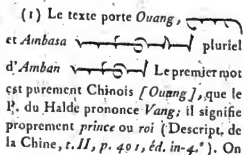 (1) Le texte porte Ouang,
et Ambasa pluriel
d'Amban Le premier mot
est purement Chinois [Ouang], que le
P. du Halde prononce Vang; il signifie
proprement prince ou roi (Descript. de
la Chine, t. II, p. 401, éd. in-4.°). On